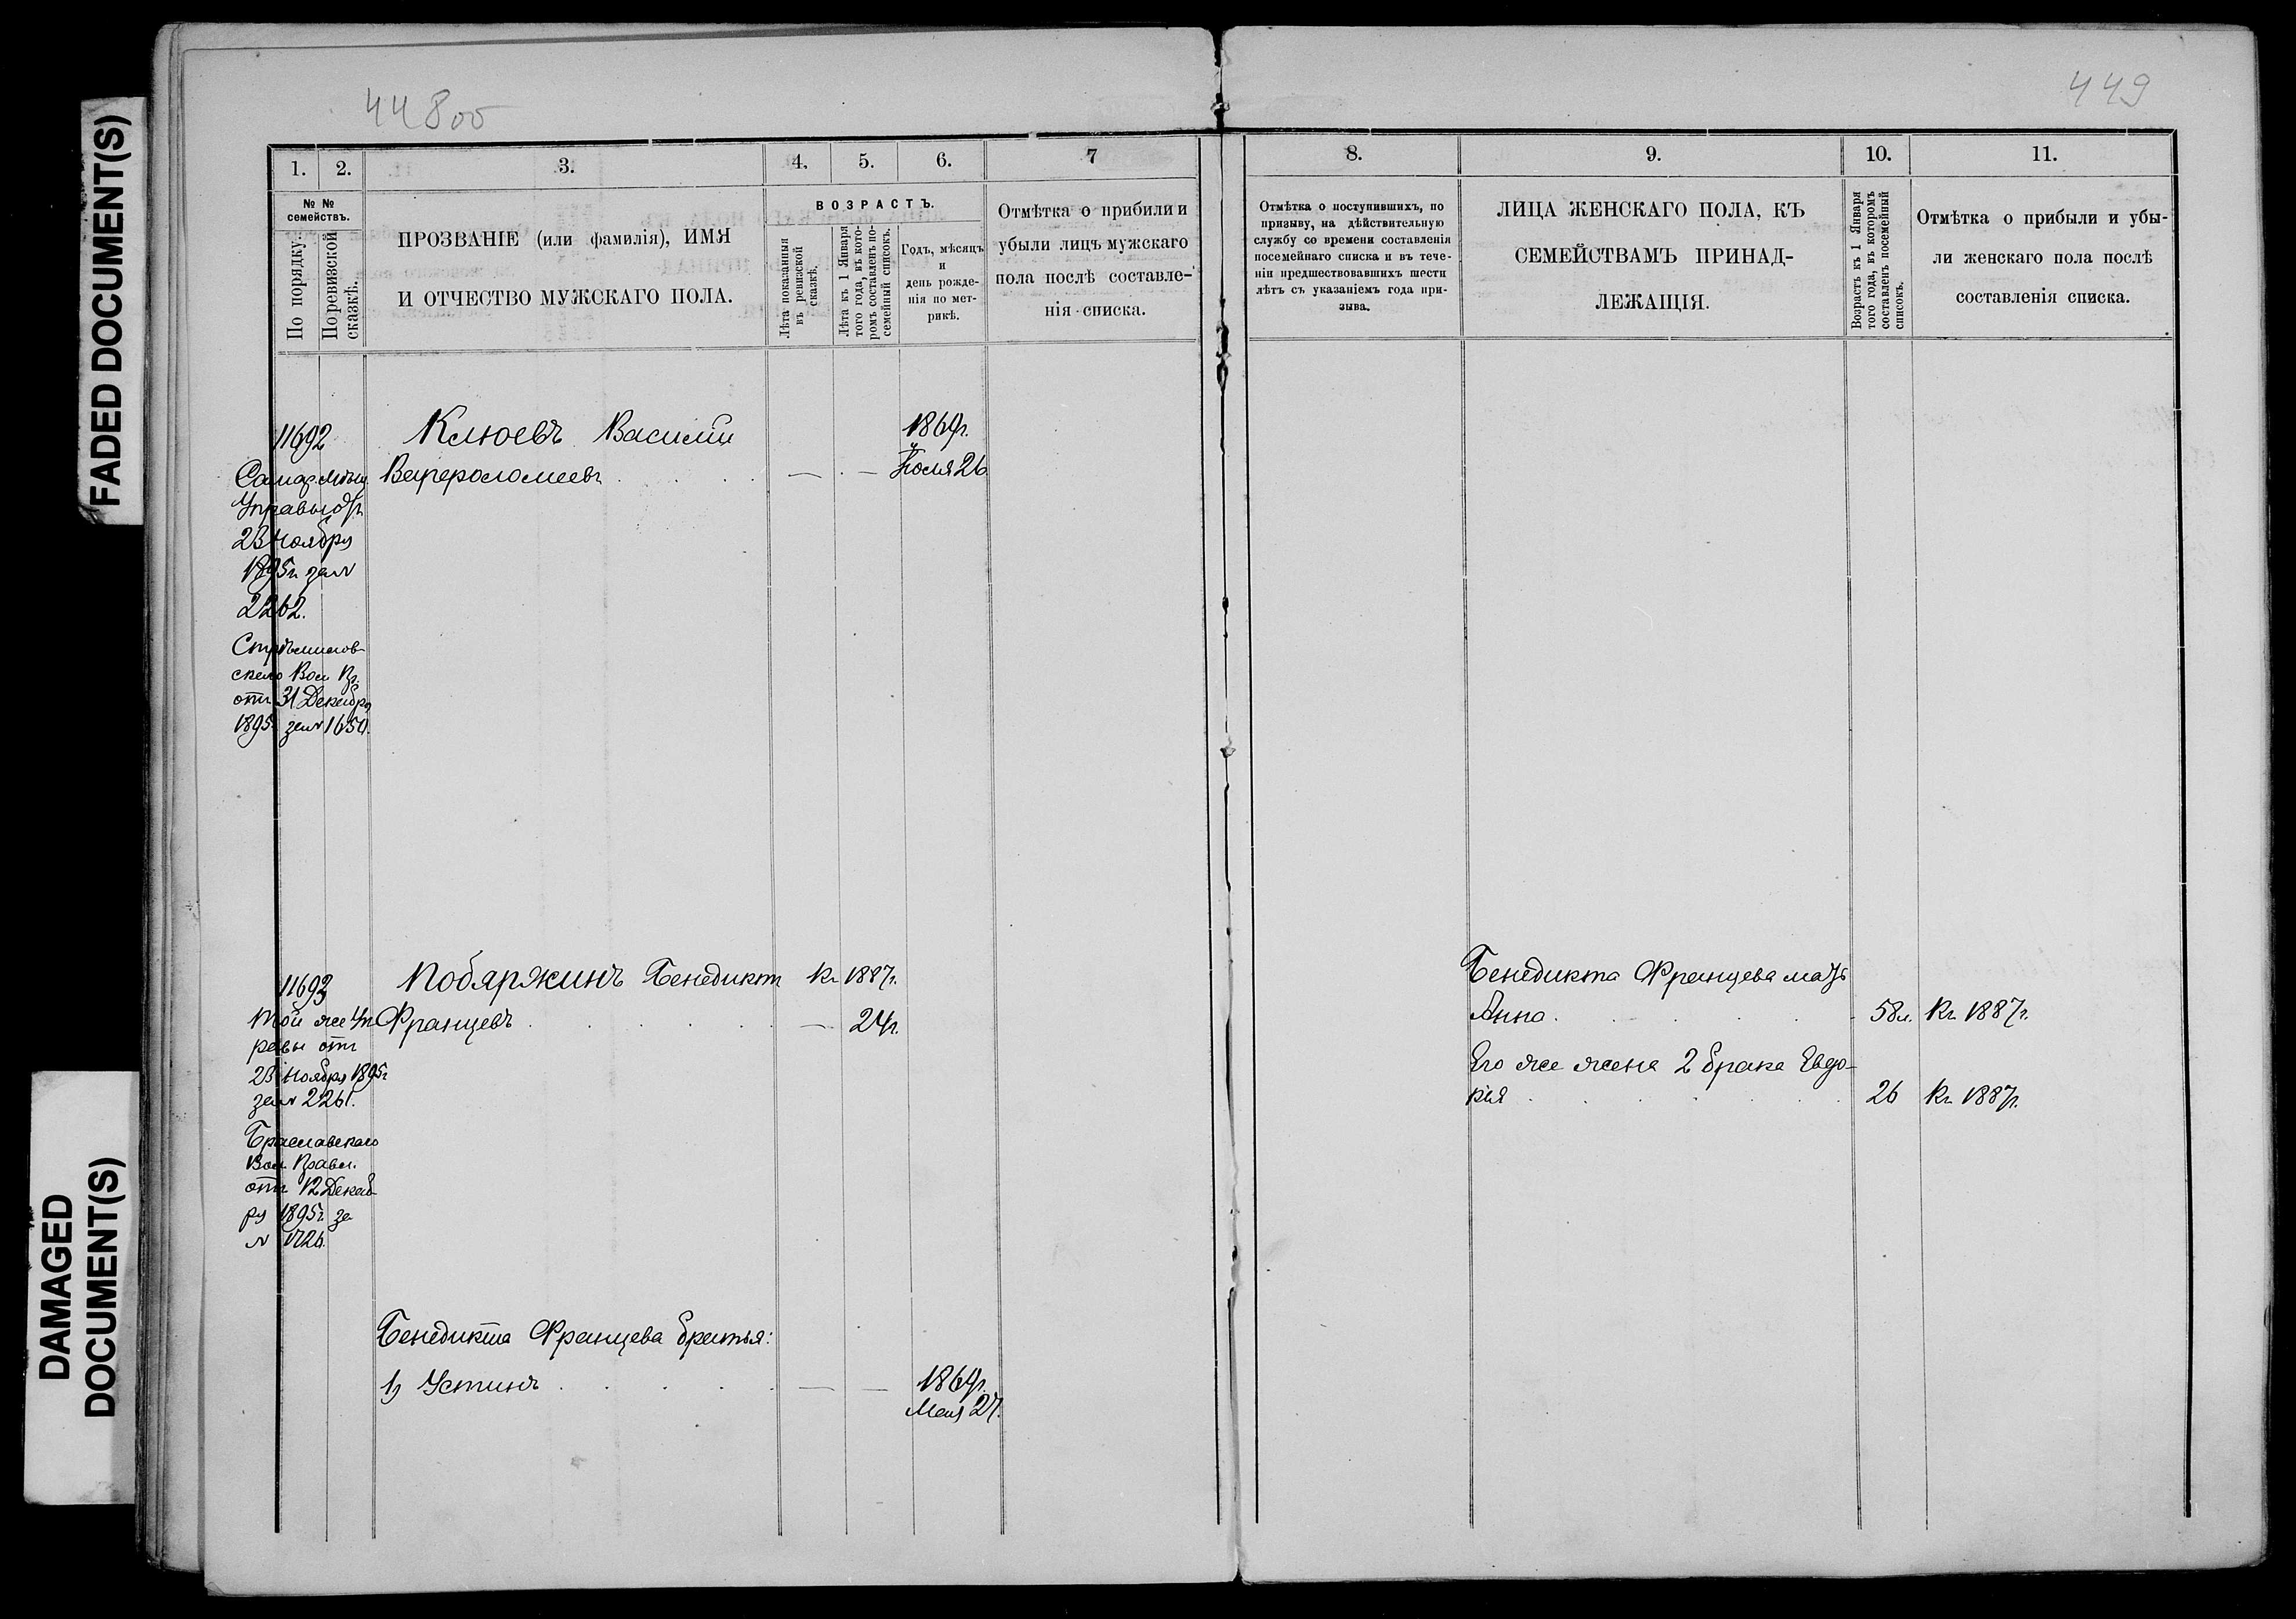 FADED DOCUMENT(S)
DAMAGED
DOCUMENT(S)
448об
1. 2. 3. 4. 5. 6. 7
№ №
семействъ.
По порядку.
По ревизской
сказкѣ.
ПРОЗВАНІЕ (или фамилія), ИМЯ
И ОТЧЕСТВО МУЖСКАГО ПОЛА.
ВОЗРАСТЪ.
Лѣта показанныя
въ ревизской
сказкѣ.
Лѣта къ 1 Января
того года, въ кото-
ромъ составленъ по-
семейный списокъ.
Годъ, мѣсяцъ
и
день рожде-
нія по мет-
рикѣ.
Отмѣтка о прибыли и
убыли лицъ мужскаго
пола послѣ составле-
нія списка.
11692
Самар мѣщ.
Управы отъ
23 Ноября
1895г за №
2262.
ского Вол Пр.
отъ 31 Декабря
1895г за № 1650.
Клюевъ Василій
Варфоломеевъ
1869г.
Іюля 26
11693
Той же Уп
равы отъ
23 Ноября 1895г
за № 2261.
Браславскаго
Вол. Правл.
отъ 12 Декаб-
ря 1895г за
№ 1726.
Побаржинъ Бенедиктъ Къ 1887г.
Францевъ 24г.
Бенедикта Францева братья:
1) Устинъ 1869г.
Мая 27.
449
8. 9. 10. 11.
Отмѣтка о поступившихъ, по
призыву, на дѣйствительную
службу со времени составленія
посемейнаго списка и въ тече-
ніи предшествовавшихъ шести
лѣтъ съ указаніемъ года при-
зыва.
ЛИЦА ЖЕНСКАГО ПОЛА, КЪ
СЕМЕЙСТВАМЪ ПРИНАД-
ЛЕЖАЩІЯ.
Возрастъ къ 1 Января
того года, въ которомъ
составленъ посемейный
списокъ.
Отмѣтка о прибыли и убы-
ли женскаго пола послѣ
составленія списка.
Бенедикта Францева мать
Анна 58л. Къ 1887г.
Его же жена 2 брака Евдо-
кія 26 Къ 1887г.